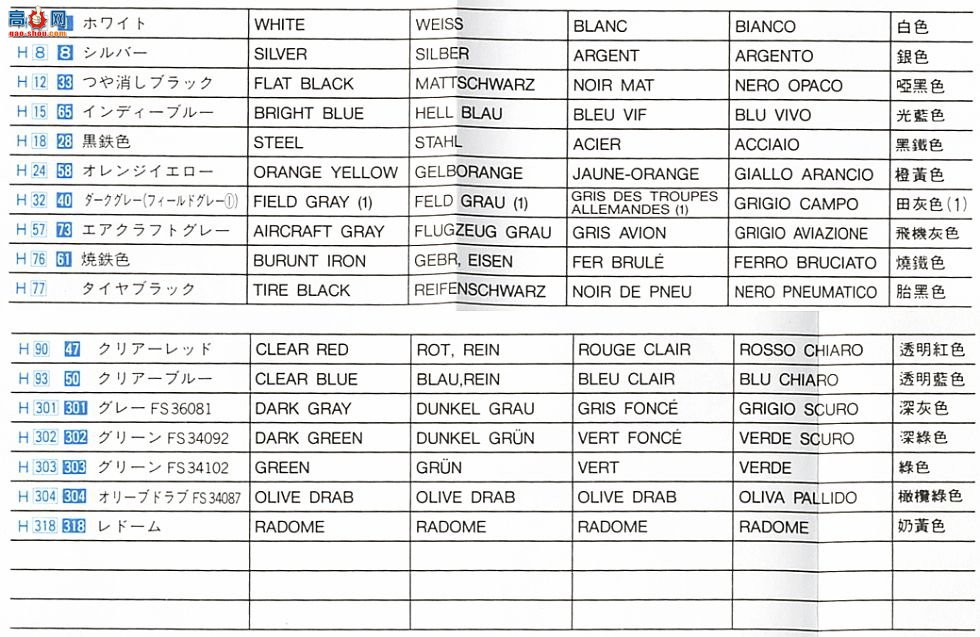 高网 gao-shou.com 1 ホワイト WHITE WEISS BLANC BIANCO 白色
H 8 8 シルバー SILVER SILBER ARGENT ARGENTO 銀色
H 12 33 つや消しブラック FLAT BLACK MATTSCHWARZ NOIR MAT NERO OPACO 啞黑色
H 15 65 インディーブルー BRIGHT BLUE HELL BLAU BLEU VIF BLU VIVO 光藍色
H 18 28 黒鉄色 STEEL STAHL ACIER ACCIAIO 黑鐵色
H 24 58 オレンジイエロー ORANGE YELLOW GELBORANGE JAUNE-ORANGE GIALLO ARANCIO 橙黃色
H 32 40 ダークグレー(フィールドグレー①) FIELD GRAY (1) FELD GRAU (1) GRIS DES TROUPES ALLEMANDES (1) GRIGIO CAMPO 田灰色(1)
H 57 73 エアクラフトグレー AIRCRAFT GRAY FLUGZEUG GRAU GRIS AVION GRIGIO AVIAZIONE 飛機灰色
H 76 61 焼鉄色 BURUNT IRON GEBR, EISEN FER BRULÉ FERRO BRUCIATO 燒鐵色
H 77 タイヤブラック TIRE BLACK REIFENSCHWARZ NOIR DE PNEU NERO PNEUMATICO 胎黑色
H 90 47 クリアーレッド CLEAR RED ROT, REIN ROUGE CLAIR ROSSO CHIARO 透明紅色
H 93 50 クリアーブルー CLEAR BLUE BLAU,REIN BLEU CLAIR BLU CHIARO 透明藍色
H 301 301 グレー FS36081 DARK GRAY DUNKEL GRAU GRIS FONCÉ GRIGIO SCURO 深灰色
H 302 302 グリーン FS34092 DARK GREEN DUNKEL GRÜN VERT FONCÉ VERDE SCURO 深綠色
H 303 303 グリーン FS34102 GREEN GRÜN VERT VERDE 綠色
H 304 304 オリーブドラブ FS34087 OLIVE DRAB OLIVE DRAB OLIVE DRAB OLIVA PALLIDO 橄欖綠色
H 318 318 レドーム RADOME RADOME RADOME RADOME 奶黃色